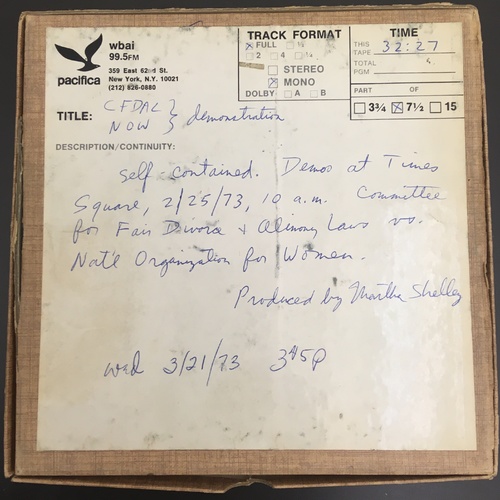 wbai
99.5FM
pacifica
359 East 62nd St.
New York, N.Y. 10021
(212) 826-0880
TRACK FORMAT
FULL ½
2 4 ¼
STEREO
MONO
DOLBY A B
TIME
THIS TAPE 32:27
TOTAL PGM
PART OF
3¾ 7½ 15
TITLE: CFDAL } demonstration
NOW
DESCRIPTION/CONTINUITY:
self contained. Demos at Times
Square, 2/25/73, 10 a.m. Committee
for Fair Divorce + Alimony Laws vs.
Nat'l Organization for Women.
Produced by Martha Shelley
wed 3/21/73 3 45p